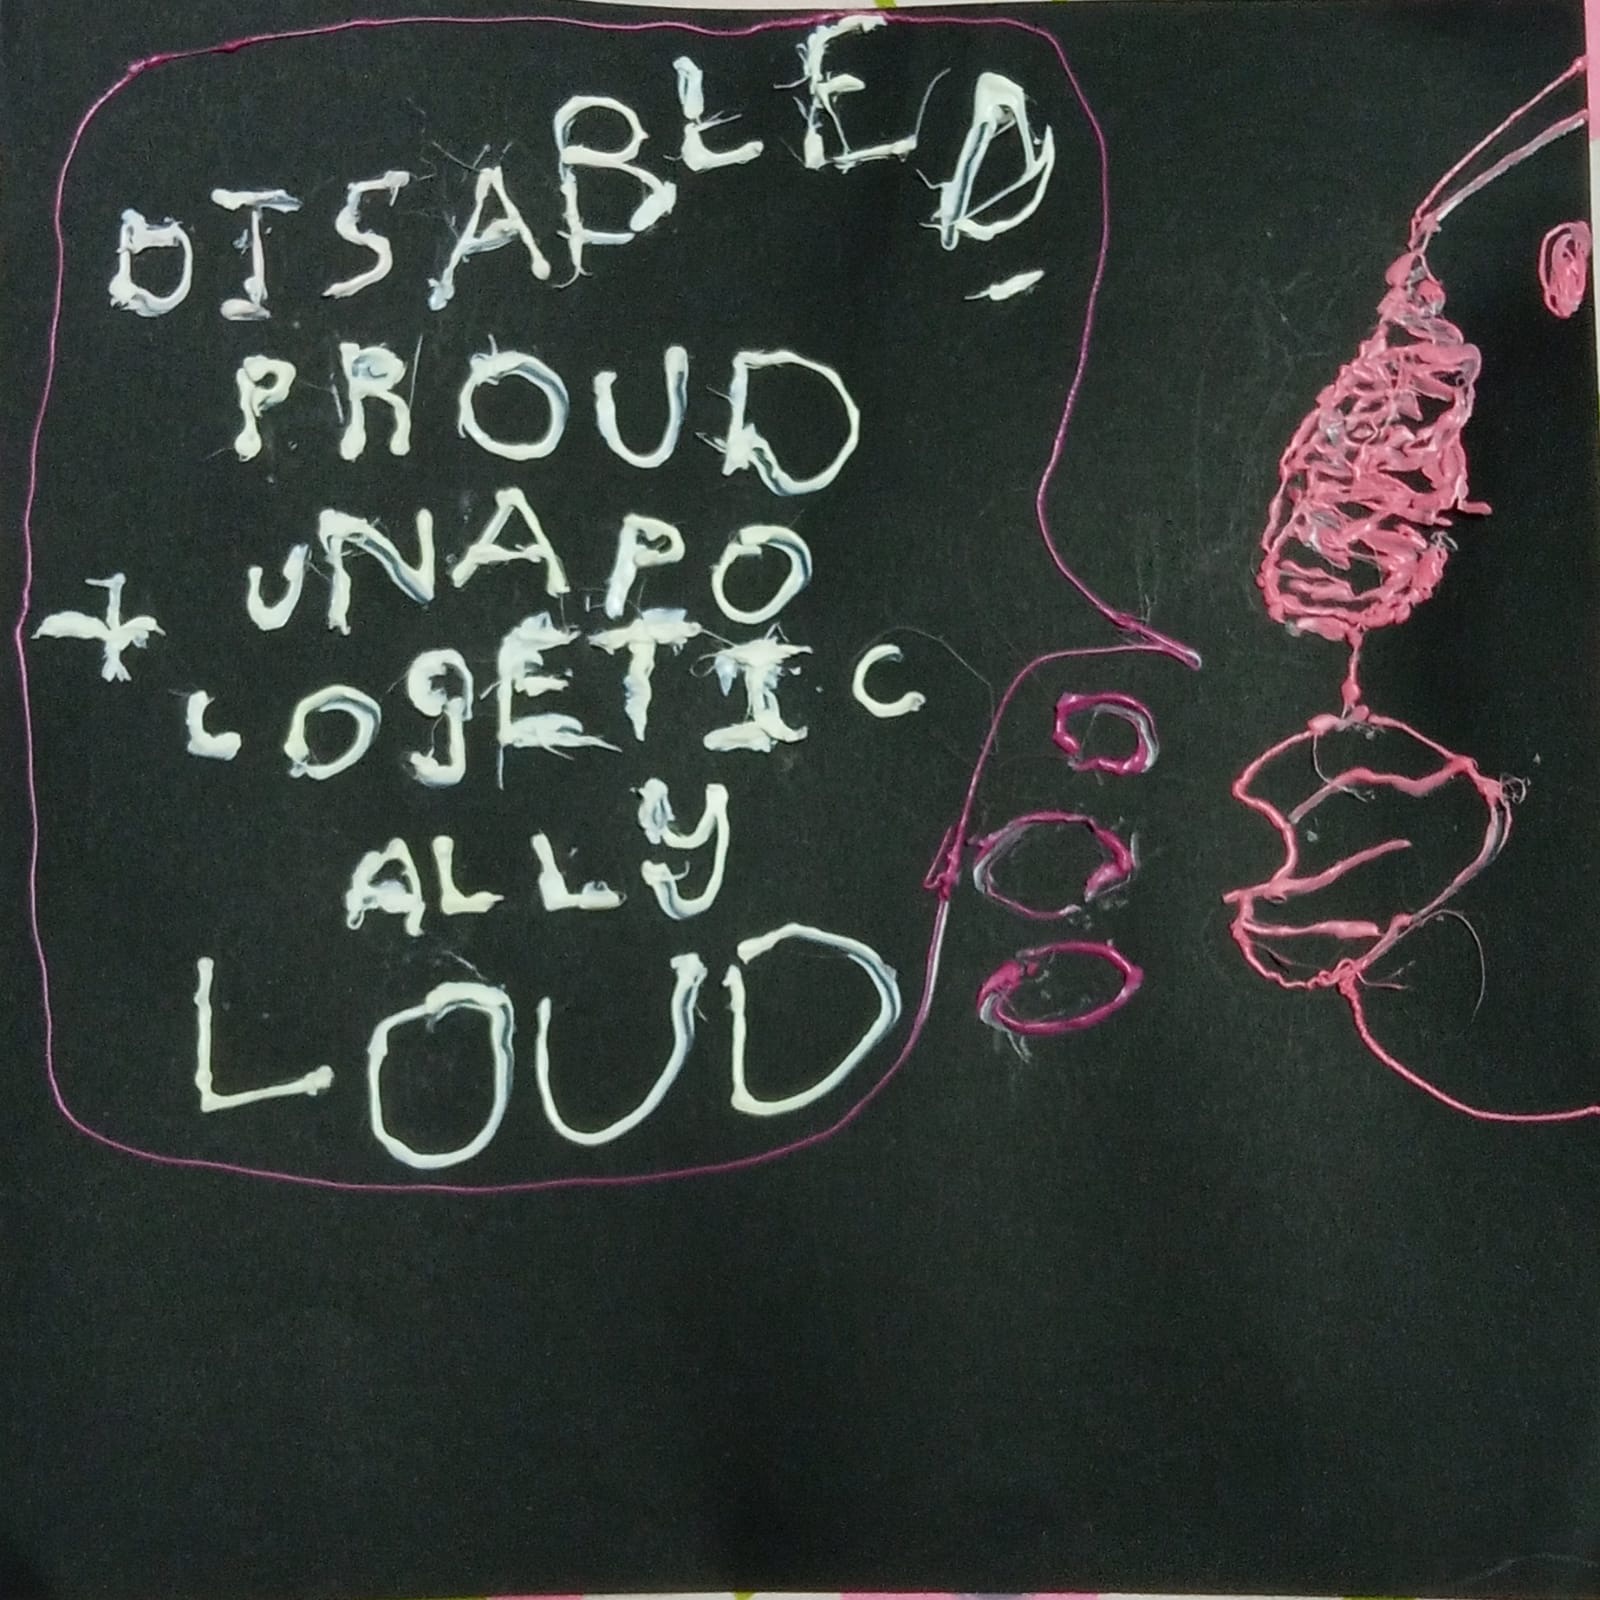 DISABLED,
PROUD
+ UNAPO
LOgETIC
ALLY
LOUD